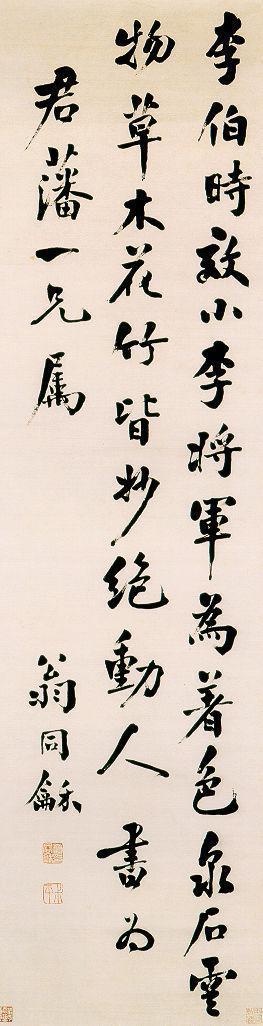 李伯時效小李將軍為著色泉石雲
物草木花竹皆妙絶動人書为
君藩一兄属
翁同龢